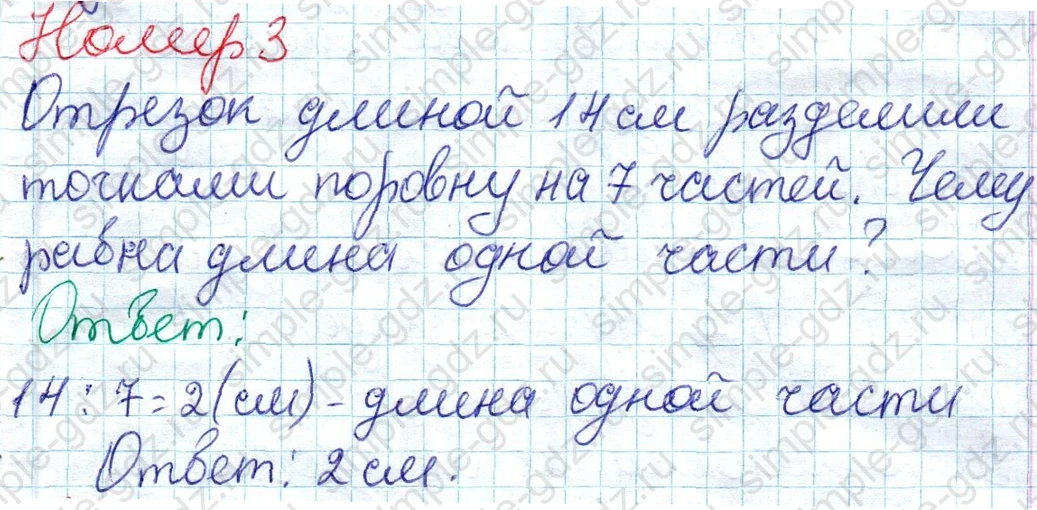 Номер 3
Отрезок длиной 14 см разделили
точками поровну на 7 частей. Чему
равна длина одной части?
Ответ:
14 : 7 = 2 (см) - длина одной части
Ответ: 2 см.
simple-gdz.ru